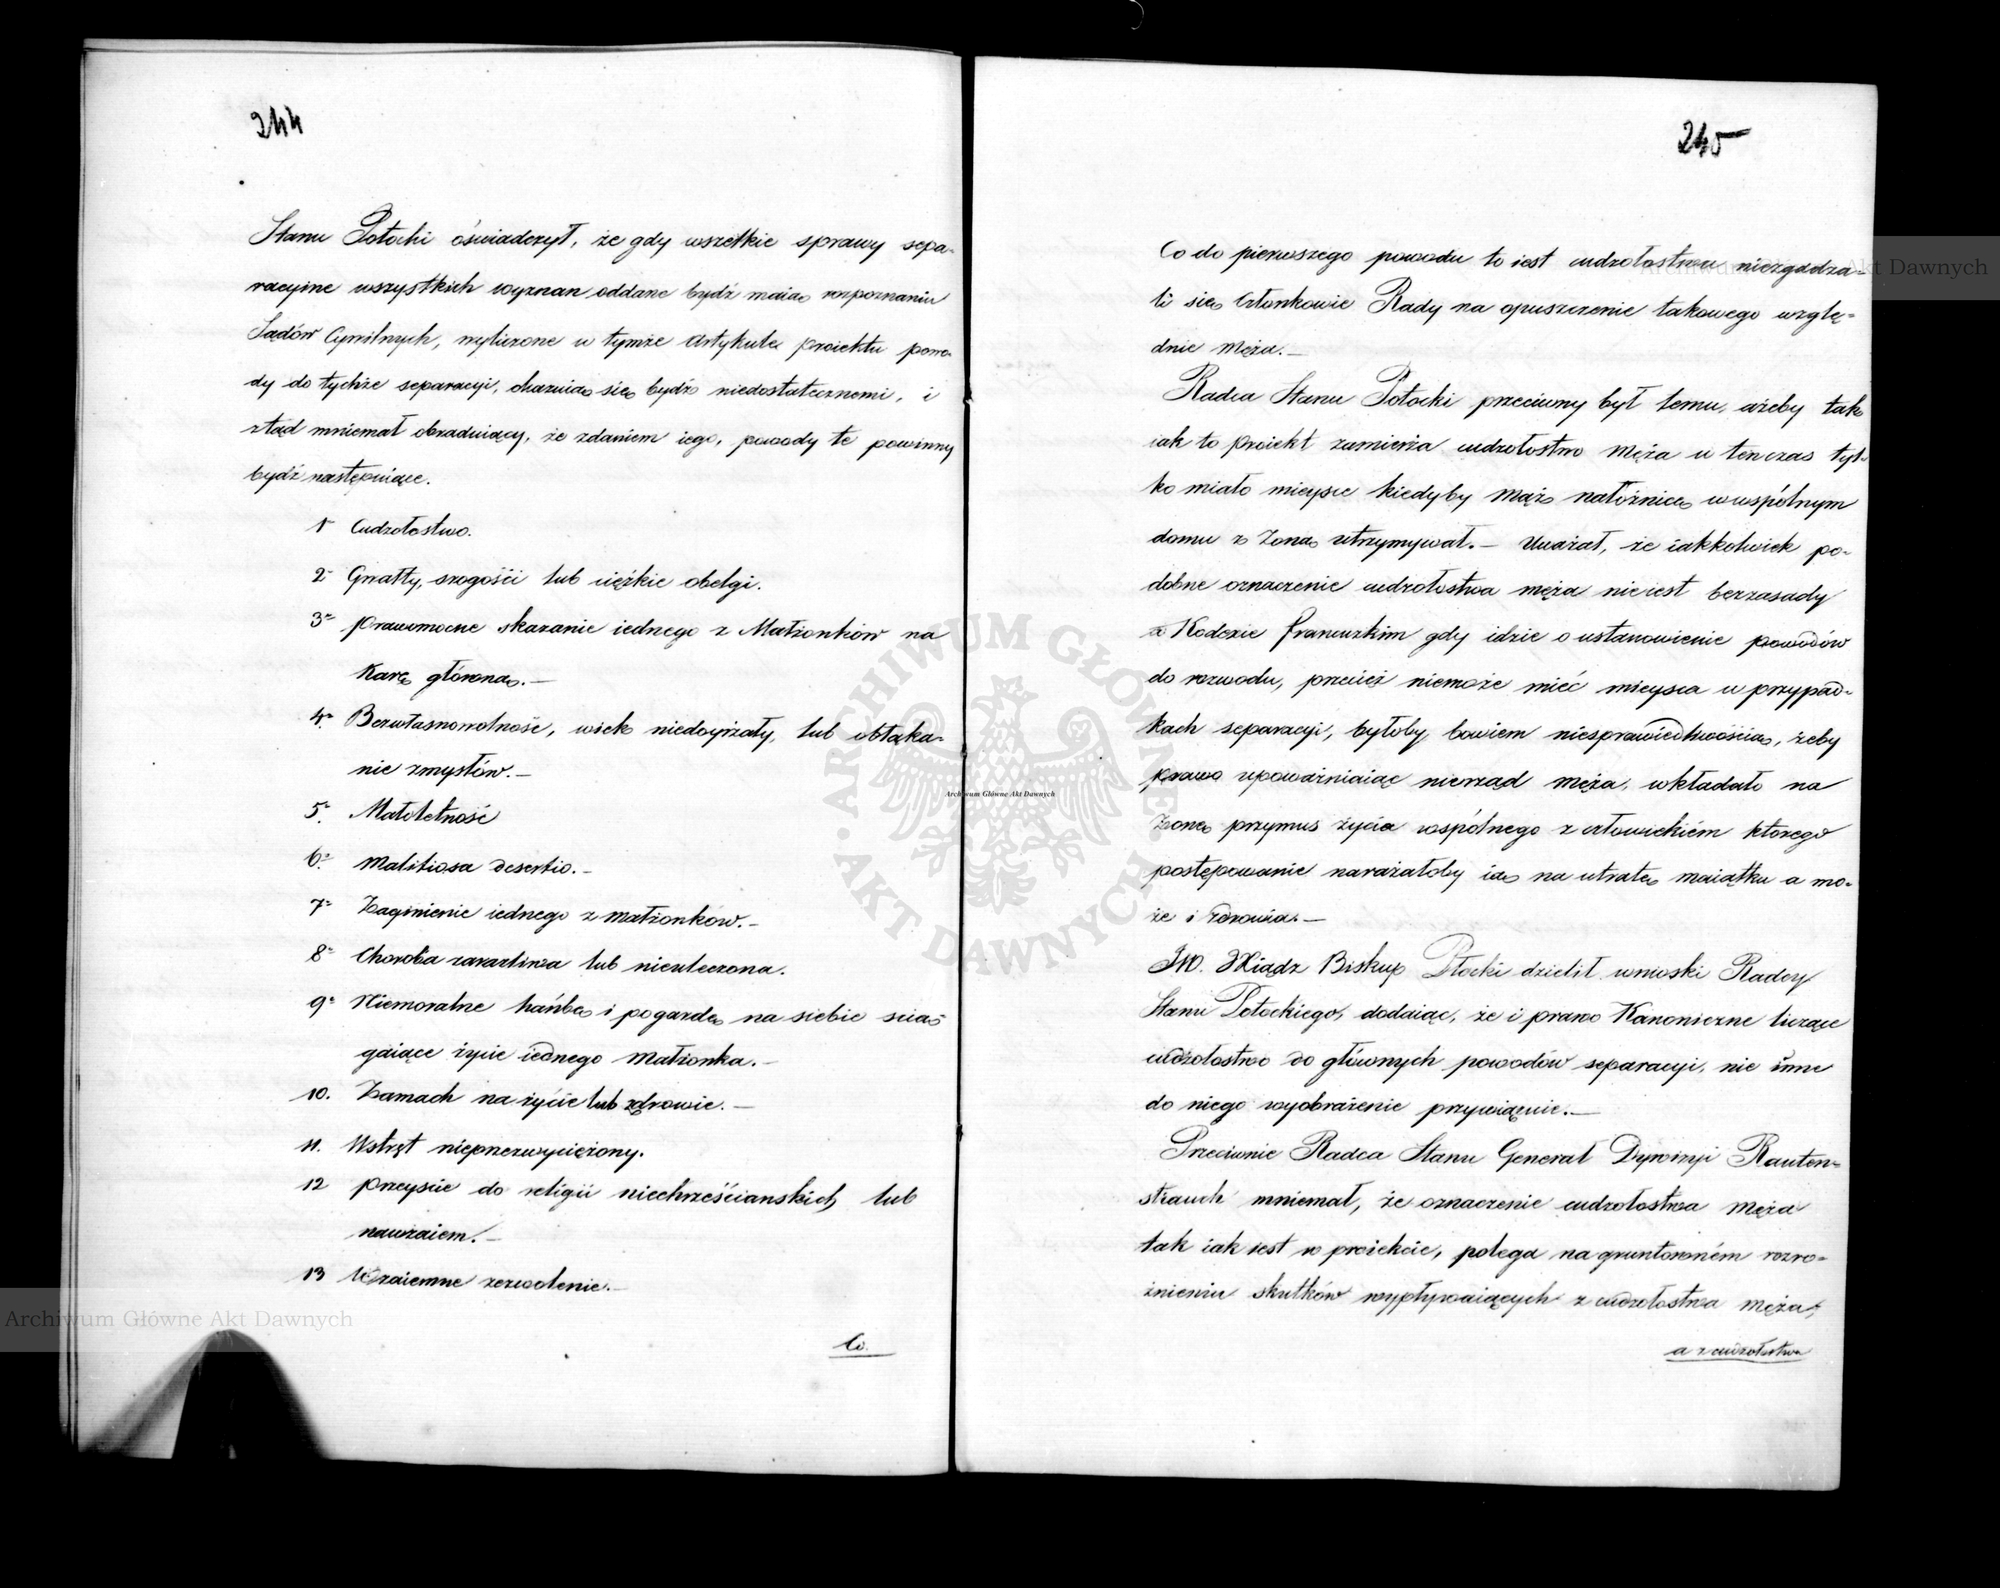 244
Stanu Potocki oświadczył, że gdy wszetkie sprawy sepa-
racyine wszystkich wyznan oddane bydź maią rozpoznaniu
Sądów Cywilnych, wyliczone w tymże Artykule proiektu powo-
dy do tychże separacyi, okazuią się bydź niedostatecznemi, i
ztąd mniemał obraduiący, że zdaniem iego, powody te powinny
bydź następuiące.
1 Cudzołostwo.
2 Gwałty, srogości lub cięźkie obelgi.
3 prawomocne skazanie iednego z Małżonków na
Karę główną.—
4. Bezwłasnowolność, wiek niedoyrzały, lub obłąka-
nie zmysłów.—
5. Małoletność
6. Malitiosa desertio.—
7 Zaginienie iednego z małżonków.—
8 Choroba zaraźliwa lub nieuleczona.
9 Niemoralne hańbę i pogardę na siebie scią-
gaiące życie iednego Małżonka.—
10. Zamach na życie lub zdrowie.—
11. Wstręt nieprzezwyciężony.
12 przeyście do religii niechrześcianskich, lub
nawzaiem.—
13 Wzaiemne zezwolenie.—
Co.
245
Co do pierwszego powodu to iest cudzołostwa niezgadza-
li się Członkowie Rady na opuszczenie takowego wzglę-
dnie Męża.—
Radca Stanu Potocki przeciwny był temu, ażeby tak
iak to proiekt zamierza cudzołostwo Męża w tenczas tyl-
ko miało mieysce kiedyby Mąż nałożnicę w wspólnym
domu z Żoną utrzymywał.— Uważał, że iakkolwiek po-
dobne oznaczenie cudzołostwa męża nie iest bez zasady
w Kodexie francuzkim gdy idzie o ustanowienie powodów
do rozwodu, przecież niemoże mieć mieysca w przypad-
kach separacyi, byłoby bowiem niesprawiedliwością, żeby
prawo upoważniaiąc nierząd męża, wkładało na
Żonę przymus życia wspólnego z człowiekiém którego
postępowanie narażałoby ią na utratę maiątku a mo-
że i zdrowia.—
JW. Xiądz Biskup Płocki dzielił wnioski Radcy
Stanu Potockiego, dodaiąc, że i prawo Kanoniczne licząc
cudzołostwo do głównych powodów separacyi, nie inne
do niego wyobrażenie przywiązuie.—
Przeciwnie Radca Stanu Generał Dywizyi Rauten-
strauch mniemał, że oznaczenie cudzołostwa Męża
tak iak iest w proiekcie, polega na gruntowném rozro-
żnieniu skutków wypływaiących z cudzołostwa Męża,
a z cudzołostwa
Archiwum Główne Akt Dawnych
Archiwum Główne Akt Dawnych
Archiwum Główne Akt Dawnych
ARCHIWUM GŁÓWNE AKT DAWNYCH